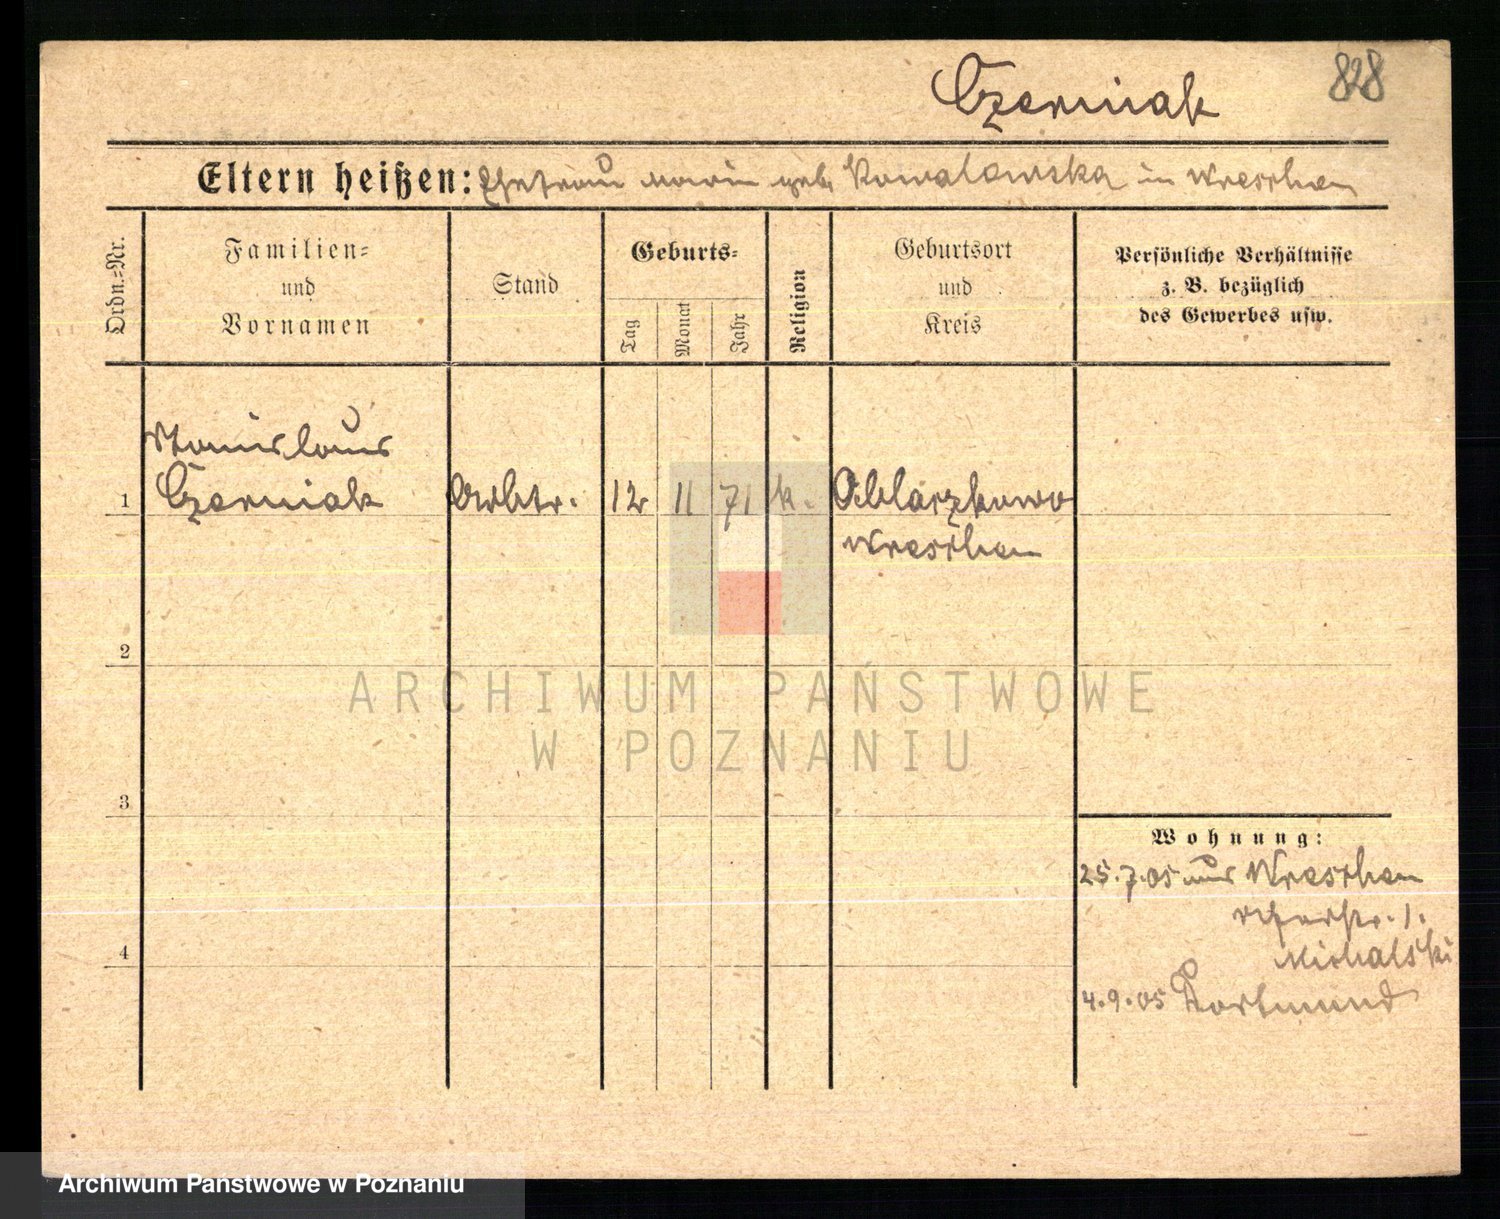 Czerniak 828
Eltern heißen: Ehefrau Maria geb. Kowalowska in Wreschen
Ordn.=Nr.
Familien=
und
Vornamen
Stand
Geburts=
Tag
Monat
Jahr
Religion
Geburtsort
und
Kreis
Persönliche Verhältnisse
z. B. bezüglich
des Gewerbes usw.
Stanislaus
1 Czerniak Arbtr. 12 11 71 k.
Wreschen
2
ARCHIWUM PAŃSTWOWE
W POZNANIU
3
Wohnung:
25.7.05 aus Wreschen
1.
Michalski
4
4.9.05 Dortmund
Archiwum Państwowe w Poznaniu